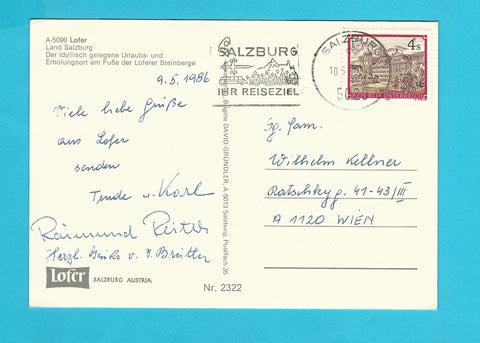 A-5090 Lofer
Land Salzburg
Der idyllisch gelegene Urlaubs- und
Erholungsort am Fuße der Loferer Steinberge
9.5.1986
Viele liebe Grüße
aus Lofer
senden
Trude u. Karl
Raimund
Herzl. Grüße v.
Lofer SALZBURG AUSTRIA
Nr. 2322
Brigitte DAVID-GRÜNDLER A-5013 Salzburg, Postfach 35
SALZBURG
IHR REISEZIEL
SALZBURG
10.5.
4 S
REPUBLIK ÖSTERREICH
Fam.
Wilhelm Kellner
Ratschkyg. 41-43/III
A 1120 WIEN